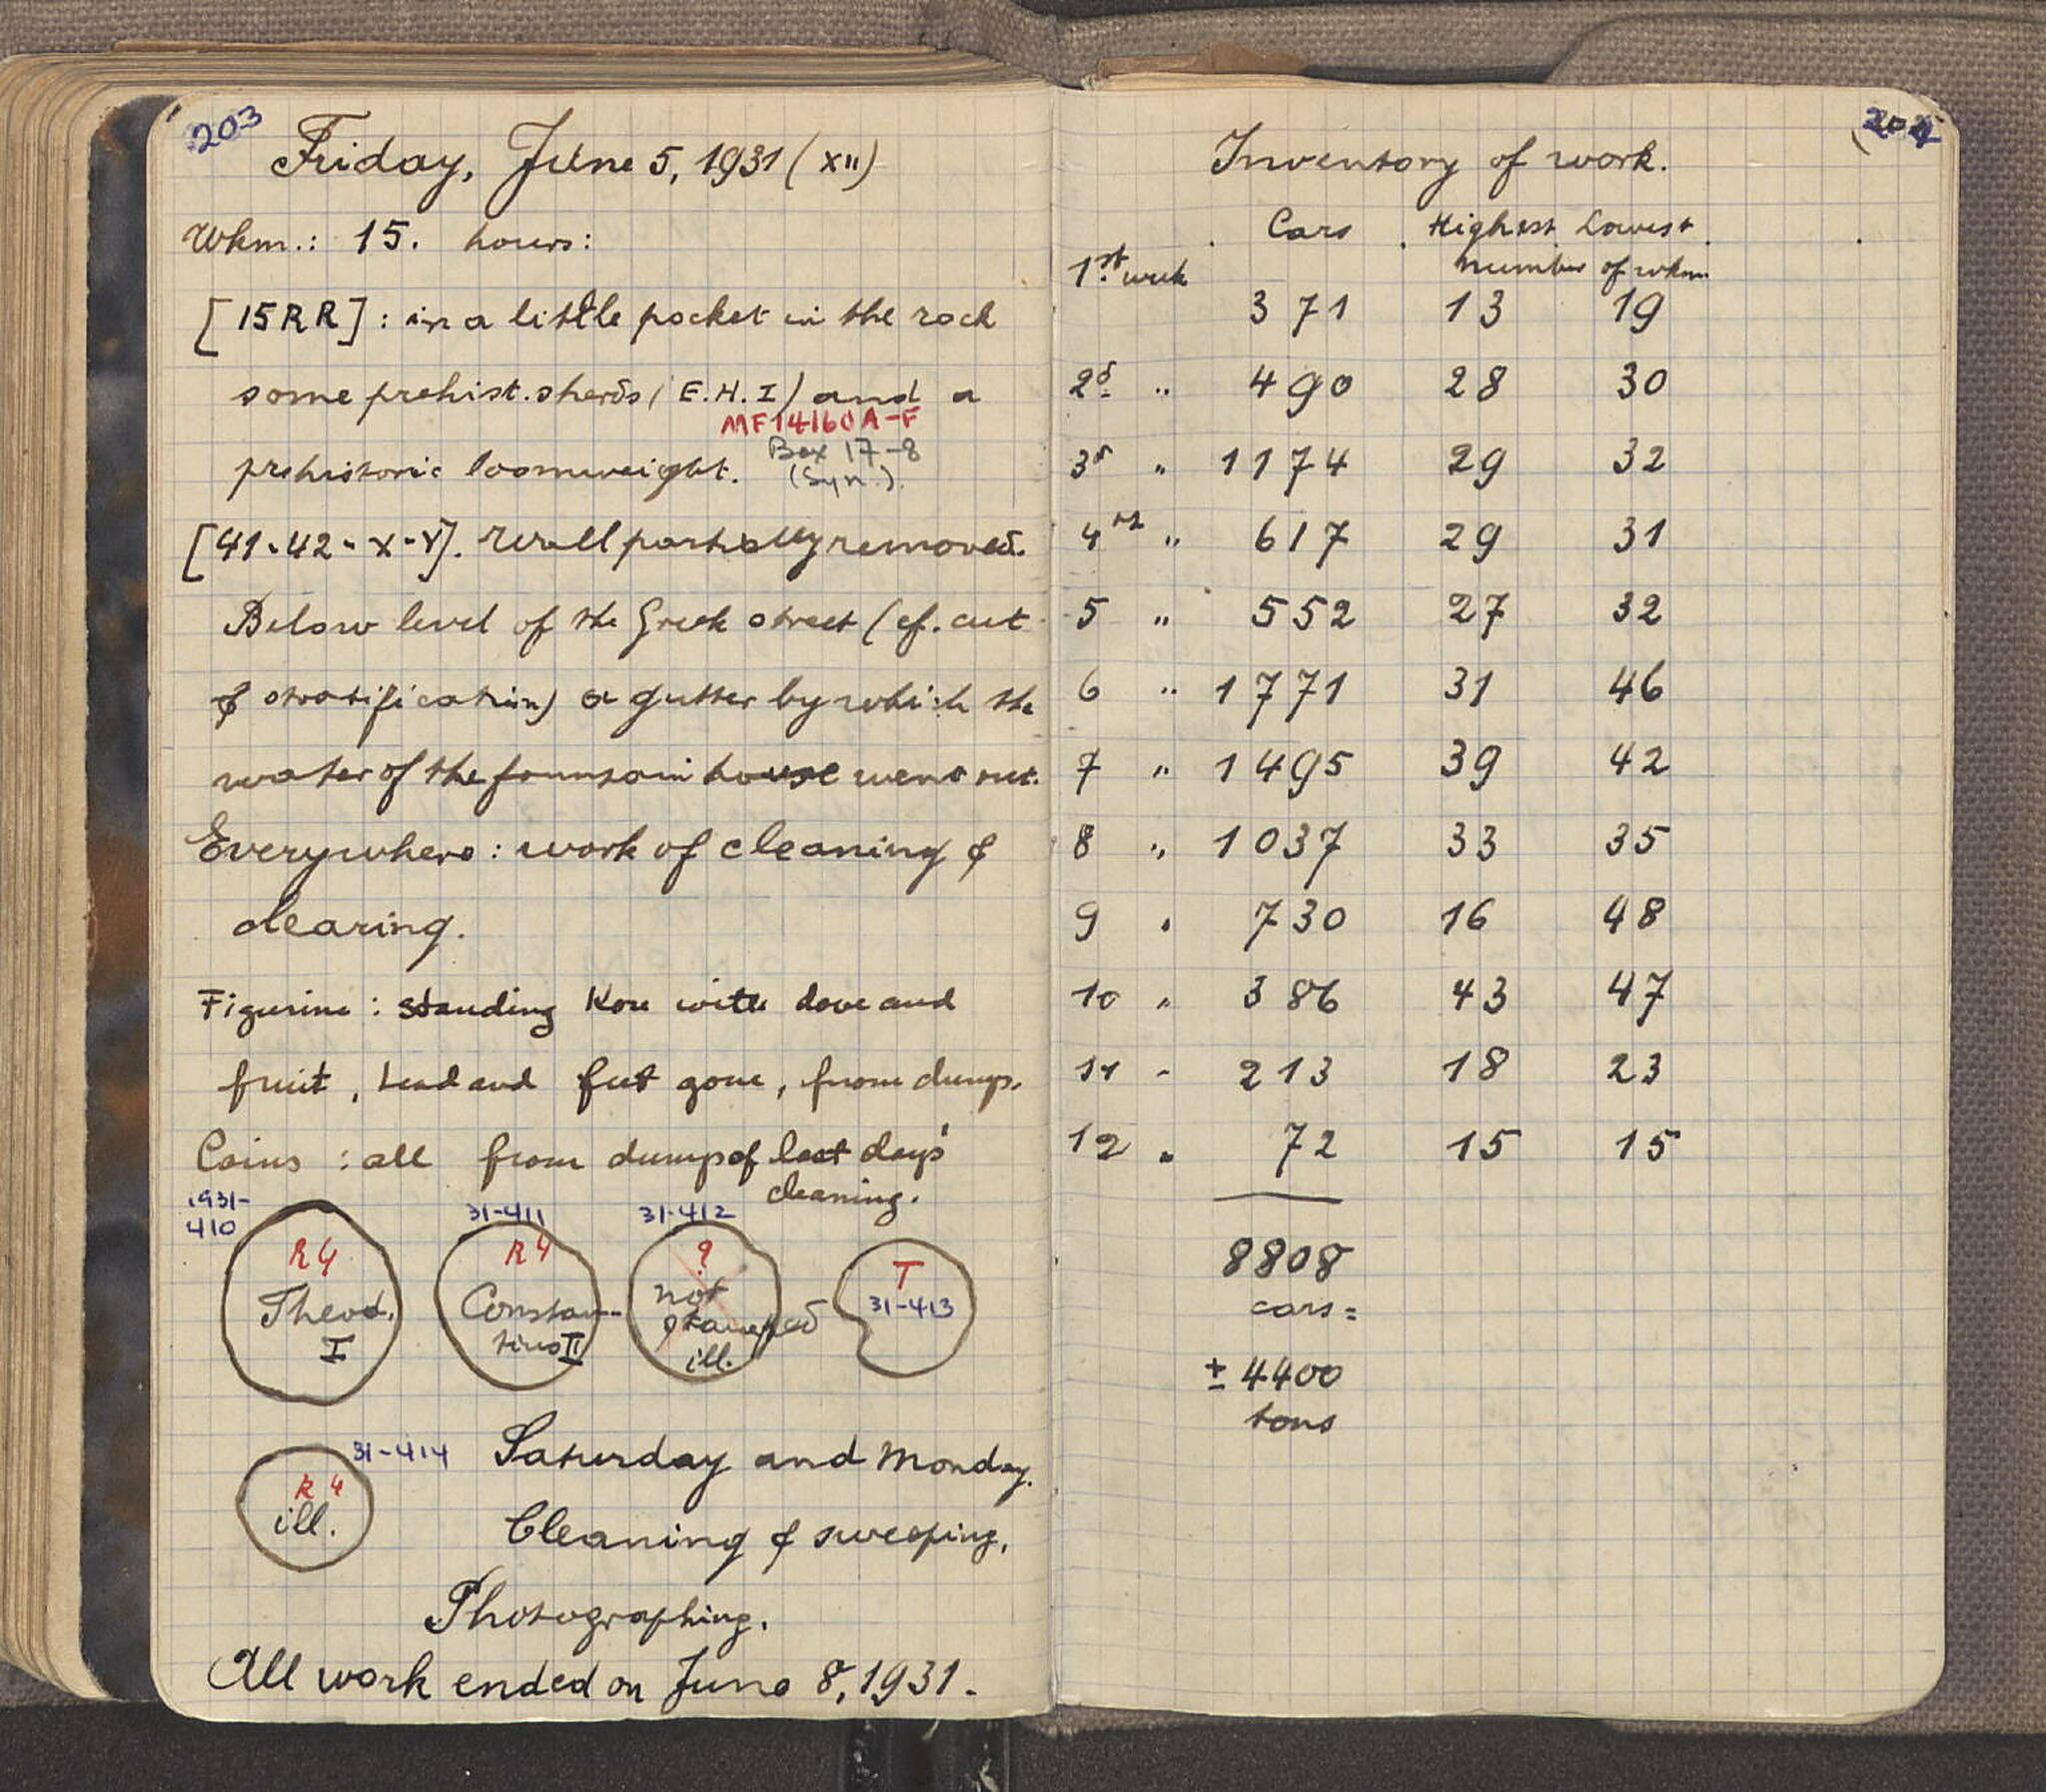 203
Friday, June 5, 1931 (XII)
Wkm.: 15. hours:
[15RR]: in a little pocket in the rock
some prehist. sherds (E.H.I) and a
MF14160A-F
prehistoric loomweight.
Box 17-8
(Syn.)
[41-42-X-Y]. Wall partially removed.
Below level of the Greek street (cf. cut
of stratification) a gutter by which the
water of the fountain house went out.
Everywhere: work of cleaning &
clearing.
Figurine: standing Kore with dove and
fruit, head and feet gone, from dump.
Coins: all from dump of last days'
cleaning.
1931-
410
R4
Theod.
I
31-411
R4
Constan-
tius II
31-412
?
not
stamped
ill.
T
31-413
31-414
R4
ill.
Saturday and Monday.
Cleaning & sweeping,
Photographing.
All work ended on June 8, 1931.
204
Inventory of work.
Cars Highest Lowest
number of wkm.
1st week
371 13 19
2d " 490 28 30
3d " 1174 29 32
4th " 617 29 31
5 " 552 27 32
6 " 1771 31 46
7 " 1495 39 42
8 " 1037 33 35
9 " 730 16 48
10 " 386 43 47
11 " 213 18 23
12 " 72 15 15
8808
cars =
± 4400
tons